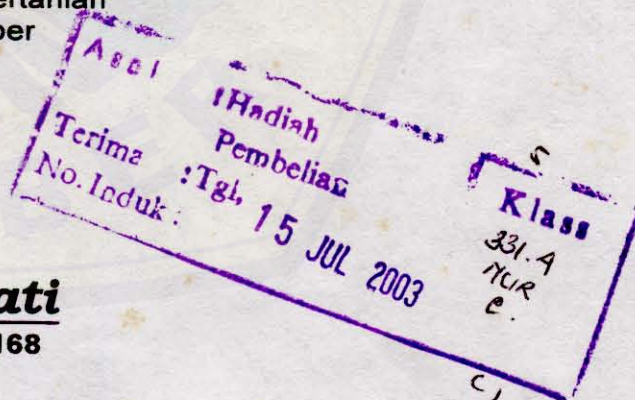 ertanian
ber
Asal : Hadiah
Pembelian
Terima : Tgl, 15 JUL 2003
No. Induk :
Klass
S
331.4
NUR
c.
ati
168